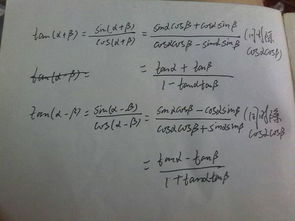 tan(α+β) = sin(α+β)/cos(α+β) = sinαcosβ+cosαsinβ/cosαcosβ-sinαsinβ (同除cosαcosβ)
tan(α-β)= = tanα+tanβ/1-tanαtanβ
tan(α-β) = sin(α-β)/cos(α-β) = sinαcosβ-cosαsinβ/cosαcosβ+sinαsinβ (同除cosαcosβ)
= tanα-tanβ/1+tanαtanβ